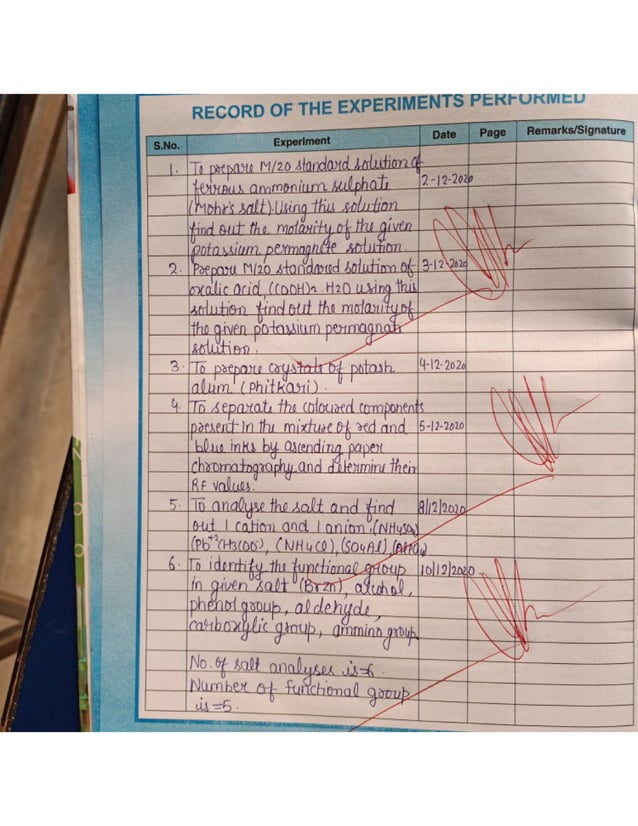 RECORD OF THE EXPERIMENTS PERFORMED
S.No. Experiment Date Page Remarks/Signature
1. To prepare M/20 standard solution of
ferrous ammonium sulphate 2-12-2020
(Mohr's salt). Using this solution
find out the molarity of the given
potassium permagnete solution
2. Prepare M/20 standared solution of 3-12-2020
oxalic acid, (COOH)2 . H2O using this
solution find out the molarity of
the given potassium permagnate
solution.
3. To prepare crystals of potash 4-12-2020
alum (Phitkari).
4. To separate the coloured components
present in the mixture of red and 5-12-2020
blue inks by ascending paper
chromatography and determine their
RF values.
5. To analyse the salt and find 8/12/2020
out 1 cation and 1 anion.
(Pb+2 CH3COO), (NH4Cl), (SO4Al)
6. To identify the functional group 10/12/2020
in given salt (Brzn), alcohol,
phenol group, aldehyde,
carboxylic group, ammino group.
No. of salt analyses is=6.
Number of functional group
is =5.